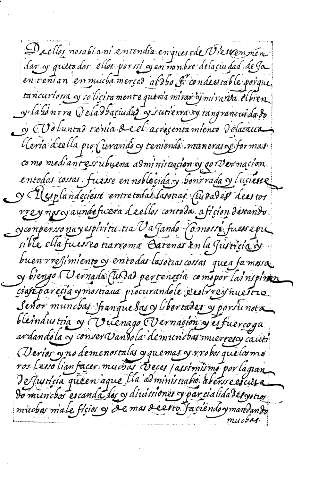 De ellos no sabia ni entendia en que se
dar y quitador ellos por si y en nonbre de la ciudad de Ja
en tenian en mucha merced al dho sr condestable porque
tan curiosa y solicitamente queria mirar y mirava el bien
y la honrra de la dha ciudad y su tierra y tan gran cuidado
y voluntad tenia de el acrecentamiento de la cava
lleria de ella procurando y teniendo maneras y formas
como mediante su buena administracion y governacion
en todas cosas fuesse ennoblecida y honrrada y luciesse
y Resplandeciesse entre todas las otras ciudades de estos
rreynos y aun de fuera de ellos con toda aficion deseando
y con persona y espiritu travajando como si fuesse pu
sible ella fuese otra rroma o atenas en la justicia y
buen rregimiento y en todas las otras cosas que a famosa
y bien governada ciudad pertenecia como por la ispirien
cia parecia y mostrava procurandole del rrey nuestro
señor munchas franquezas y libertades y por su nota
ble industria y buena governacion y esfuerço gu
ardandola y conservandola de munchas muertes y cauti
verios y no de menos talas y quemas y rrobos que los mo
ros le solian facer muchas veces assimismo por la gran
de justicia que en aquella administrava
do munchos escandalos y divisiones y parcialidades y otros
muchos maleficios y demas de esto faciendo y mandando
muchas